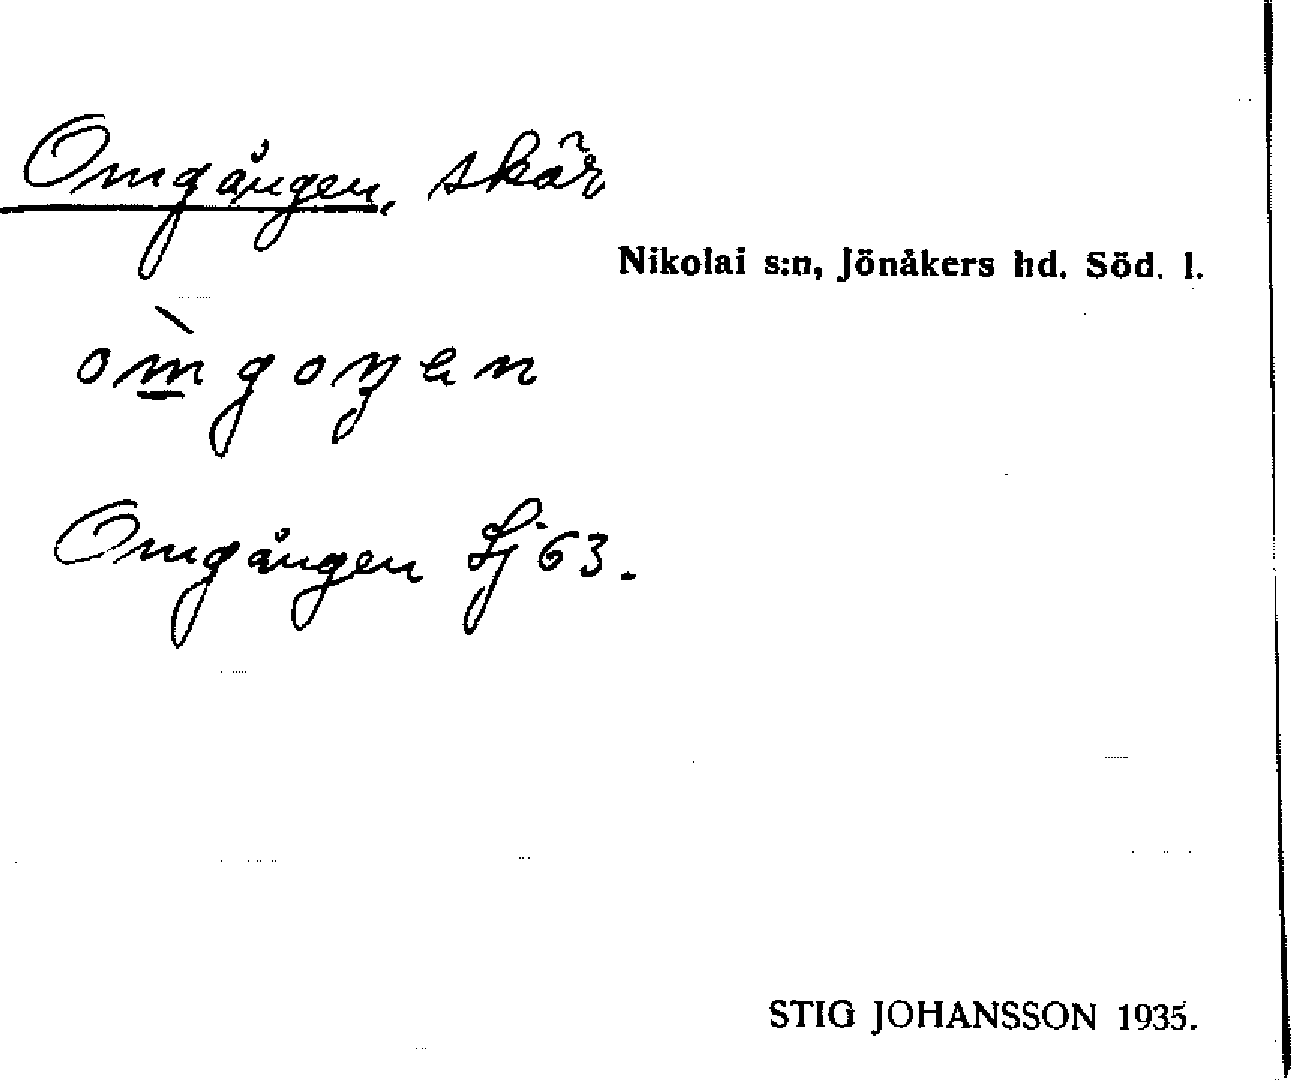 Omgången, skär
Nikolai s:n, Jönåkers hd. Söd. l.
òm̲goŋen
Omgången Sj 63.
STIG JOHANSSON 1935.